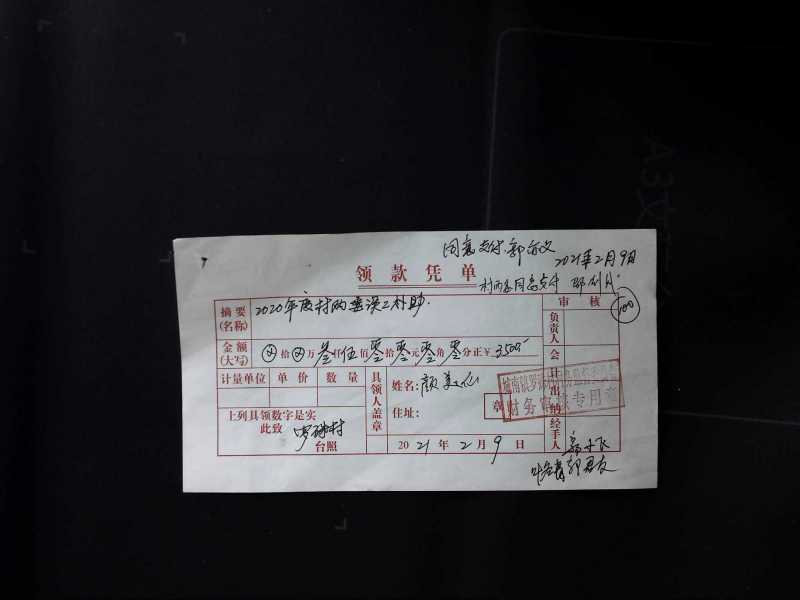 同意支付.郭
2021年2月9日
领款凭单
村两委同意支付
100
摘要
(名称)
2020年度村两委误工补助.
审核
负责人
金额
(大写)
⊗拾⊗万叁仟伍佰零拾零元零角零分正￥3500
会计
计量单位 单价 数量
具领人盖章
姓名:颜美仙
住址:
章
出纳
财务审核专用章
上列具领数字是实
此致
村
台照
2021年2月9日
经手人